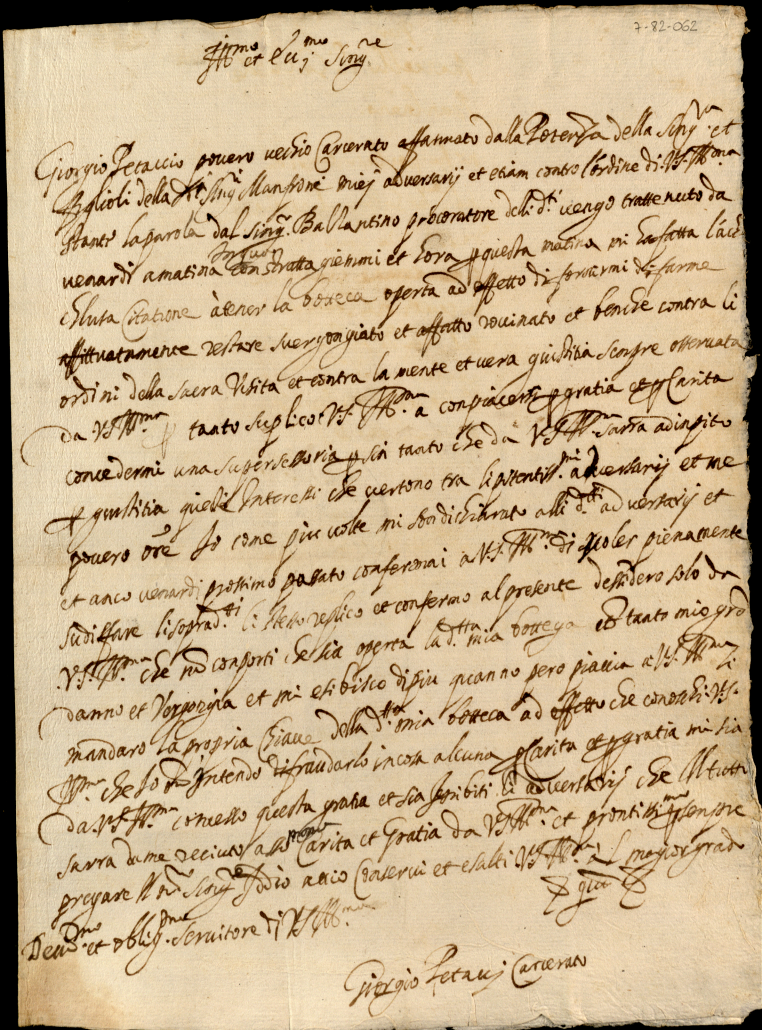 7-82-062
Ill.mo et Ecc.mo Sing.re
Giorgio Petaccio povero vechio Carcerato affannato dalla Potenza della Sing.ra et
figlioli della Sing. Manfroni miej adversarij et etiam contro l'ordine di V.S. Ill.ma
stante la parola dal Sing.r Ballantino procoratore delli d.ti vengo trattenuto da
venardi a matina giemmi et hora p questa matina mi ha fatta
Citatione à tener la botteca operta ad effetto di farme
restare svergongiato et affatto rouinato et benche contra li
ordini della sacra Visita et contra la mente et vera giustitia senpre osservata
da V.S. Ill.ma p tanto suplico V.S. Ill.ma a conpiacersi p gratia et p Carita
concedermi una supersessoria p sin tanto che da V.S. Ill.ma sarra adinpito
p giustitia quelli Interessi che vertono tra li potentiss.mi adversarij et me
povero ore Io come piu volte mi son dichiarato alli d.tti adversarij et
et anco venardi prossimo passato confermai a V.S. Ill.ma di voler pienamente
sudisfare li soprad.tti li stesso replico et confermo al presente desidero solo da
V.S. Ill.ma che nō conporti che sia operta la d.tta mia bottega con tanto mio grā
danno et Vergongia et mi esibisco di piu quanno pero piaccia a V.S. Ill.ma li
mandaro la propria Chiave della d.tta mia botteca ad effetto che conoschi V.S.
Ill.ma che Io nō Intendo difraudarlo in cosa alcuna p Carita et p gratia mi sia
da V.S. Ill.ma concesso questa gratia et sia Inibiti li adversarij che Il tutto
sarra da me reciuto a Carita et Gratia da V.S. Ill.ma et prontissimo senpre
pregare N.ro Sing.re Iddio accio Conservi et esalti V.S. Ill.ma al magior grado
Dev.mo et oblig.mo Servitore di V.S. Ill.ma
Giorgio Petacij Carcerato